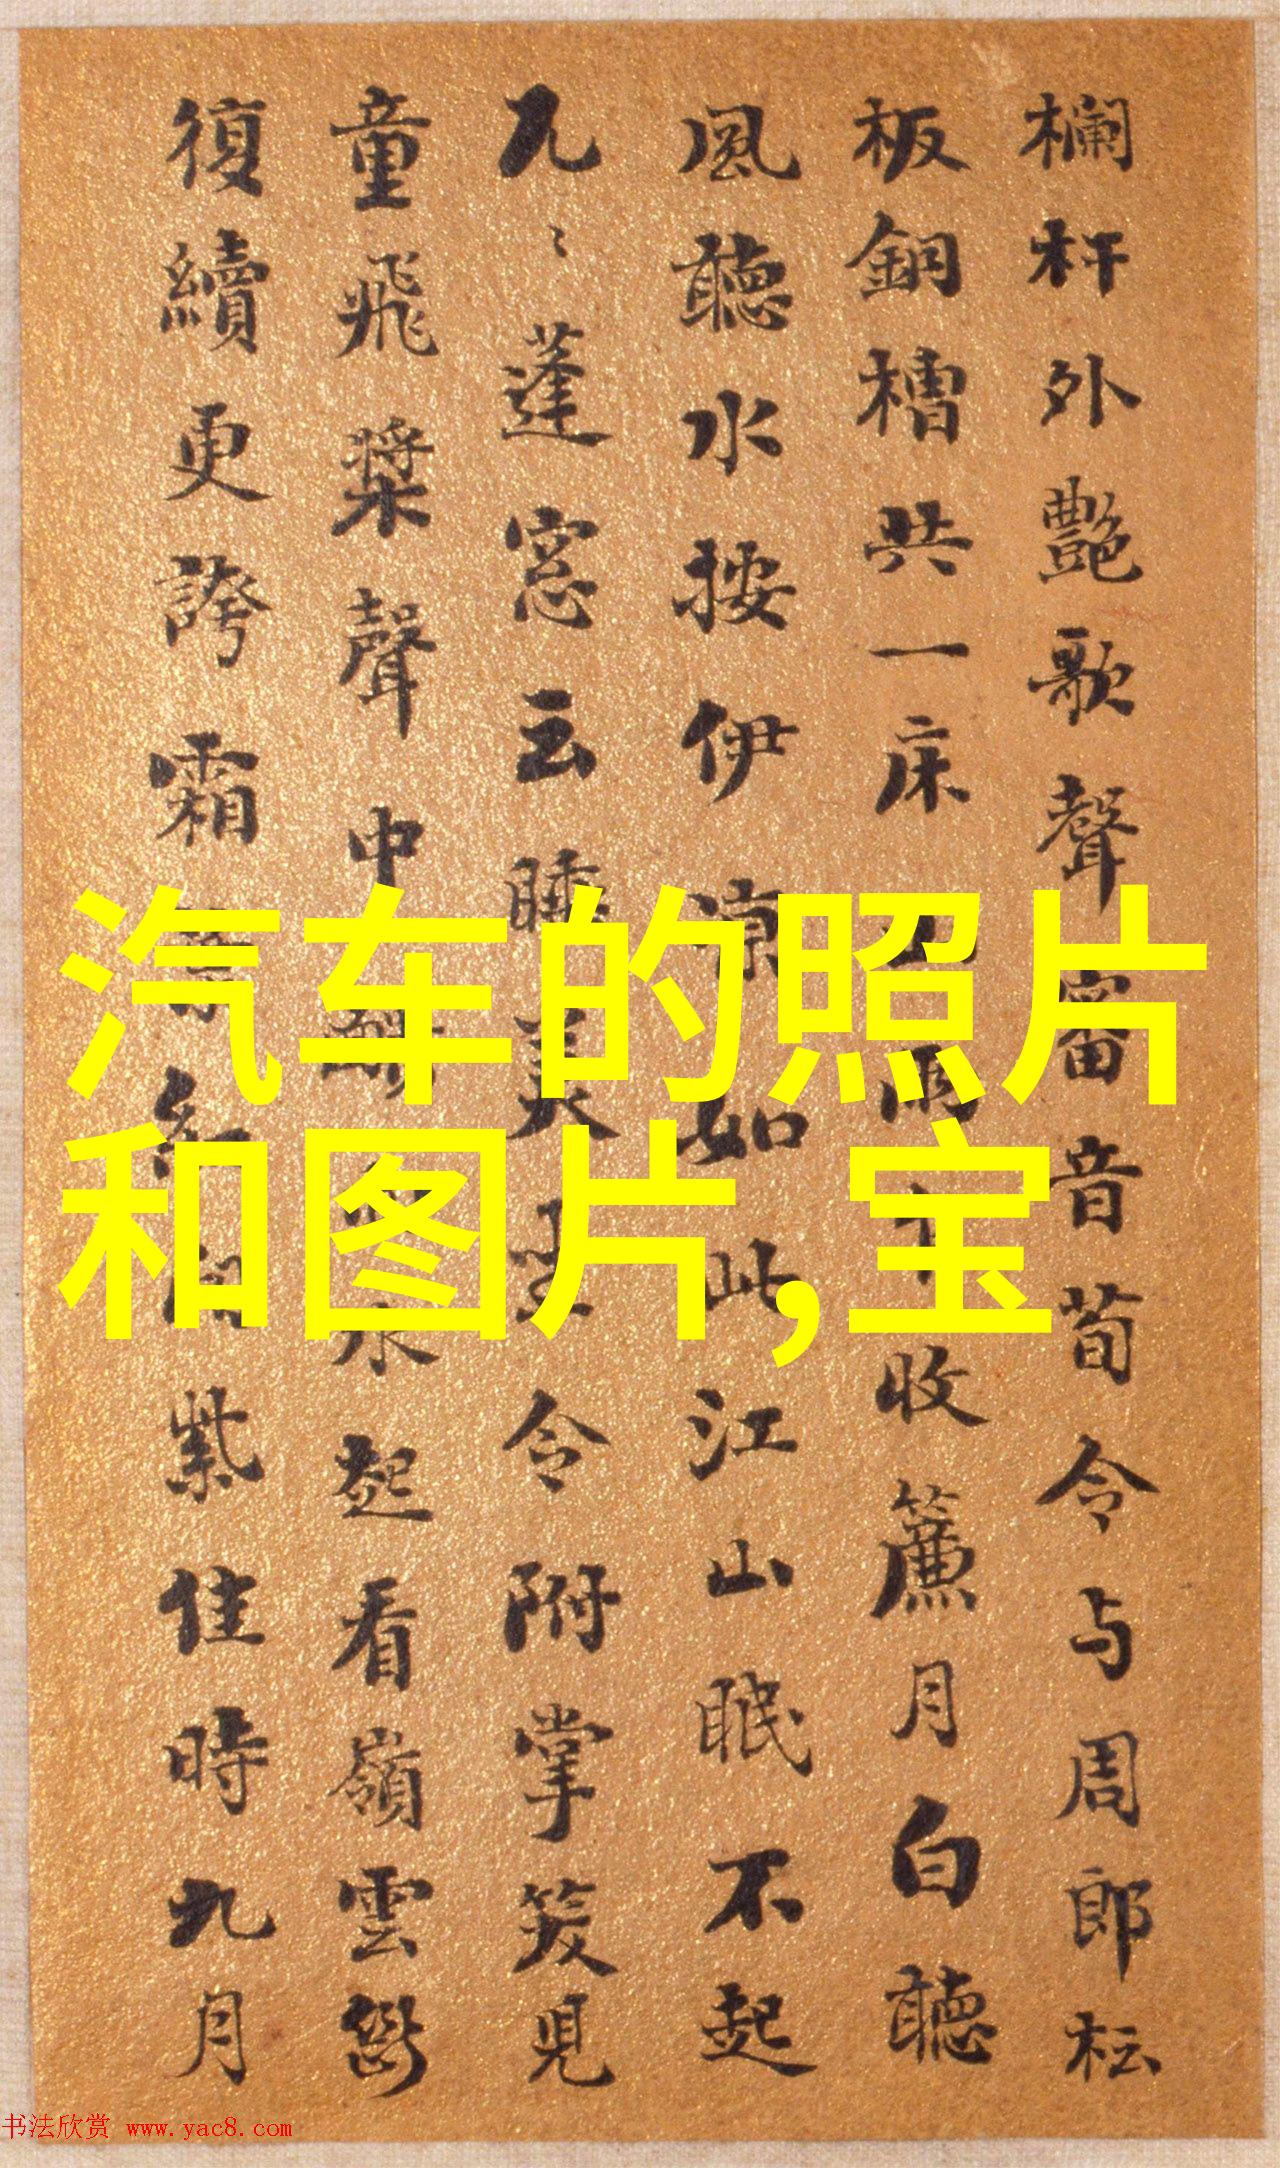 欄杆外艷歌聲審音荀令与周郎枟
板銅槽共一床雨收簾月白聽
風聽水按伊涼如此江山眠不起
凢〻蓬窓云睡美 令附掌筊見
童飛槳聲中 水起看嶺雲
復續更誇霜 紫佳時九月
汽车的照片
和图片,宝
书法欣赏 www.yac8.com